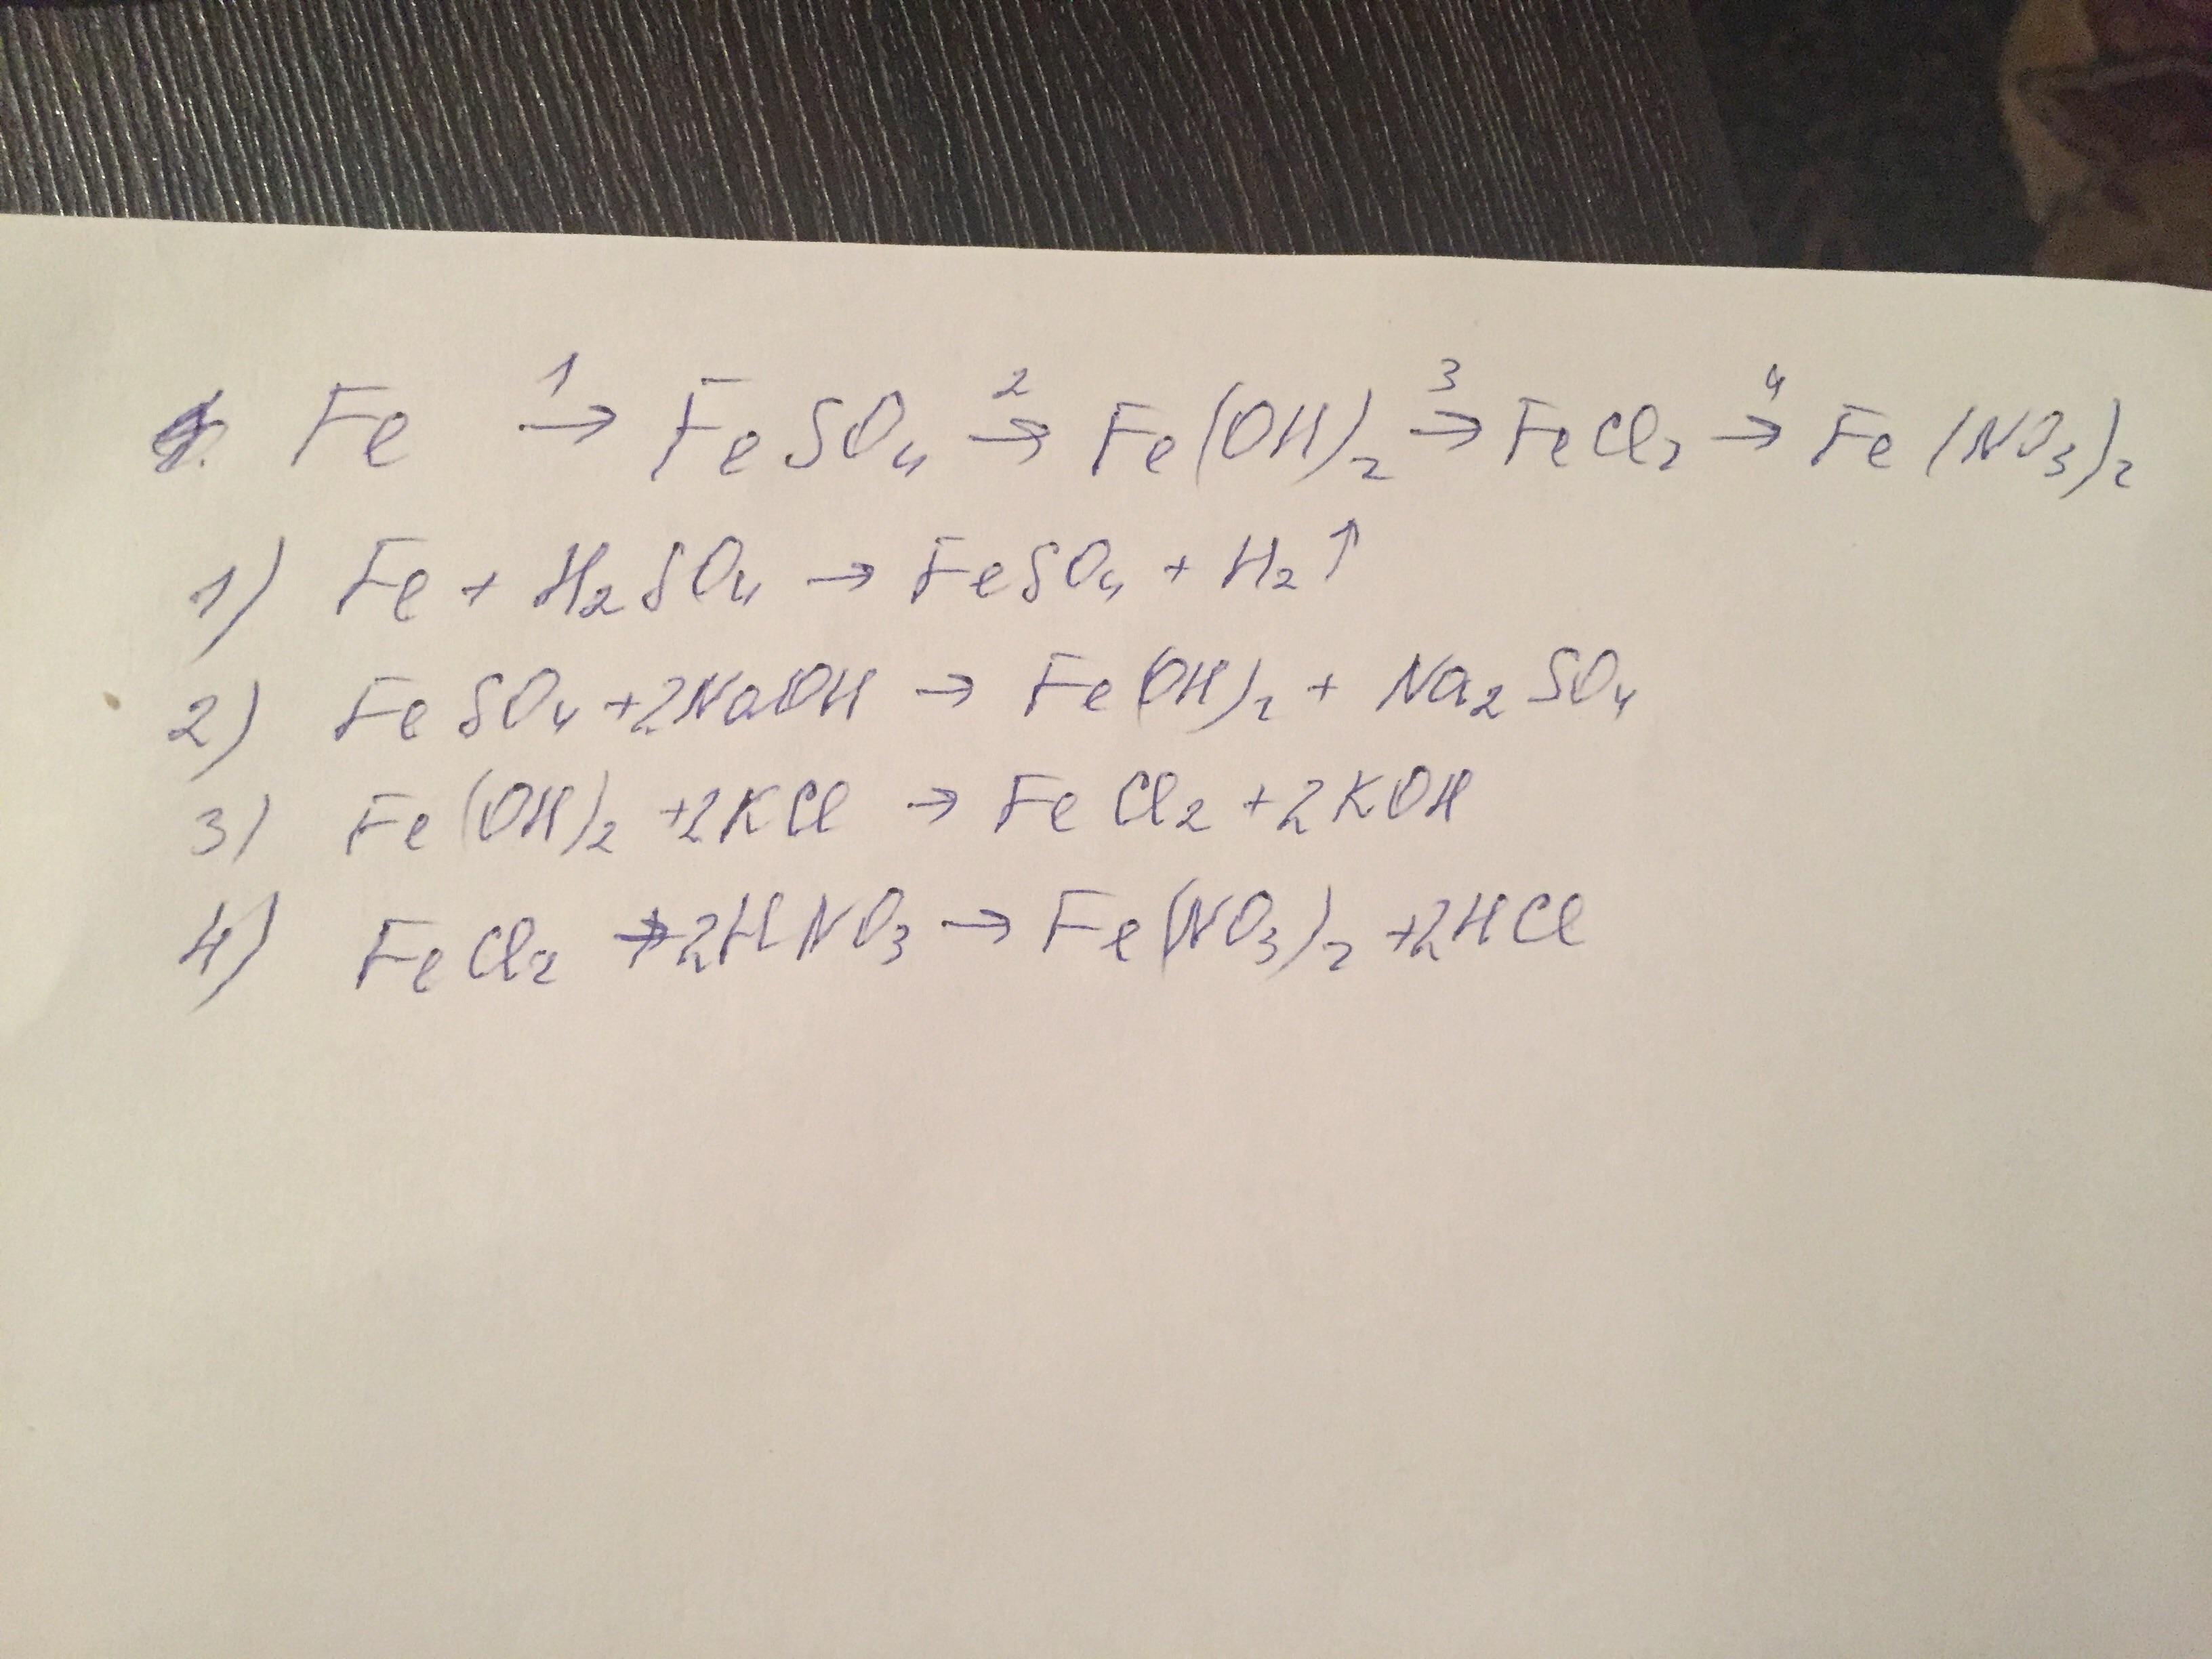 Fe 1→ FeSO₄ 2→ Fe(OH)₂ 3→ FeCl₂ 4→ Fe(NO₃)₂
1) Fe + H₂SO₄ → FeSO₄ + H₂↑
2) FeSO₄ + 2NaOH → Fe(OH)₂ + Na₂SO₄
3) Fe(OH)₂ + 2KCl → FeCl₂ + 2KOH
4) FeCl₂ + 2HNO₃ → Fe(NO₃)₂ + 2HCl